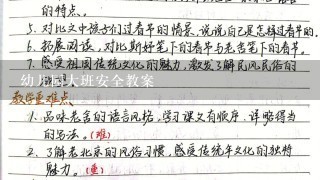 的特点。
5. 对比文中孩子们过春节的情景,说说自己是怎样过春节的。
6. 拓展阅读,对比斯好笔下的春节与老舍笔下的春节。
7. 感受祖国传统文化的魅力,激发了解民风民俗的
幼儿园大班安全教案
教学重难点
1. 品味老舍的语言风格,学习课文有顺序、详略得当
的写法。(难)
2. 了解老北京的风俗习惯,感受传统年文化的独特
魅力。(重)